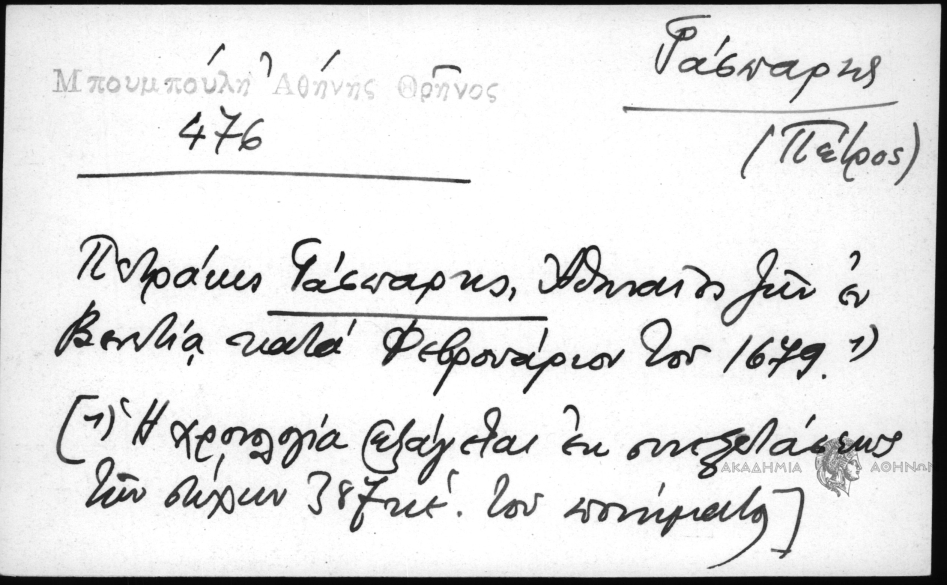 Μπουμπούλη Ἀθήνης Θρῆνος
476
Γάσπαρης
(Πέτρος)
Πετράκης Γάσπαρης, Ἀθηναῖος ζῶν ἐν
Βενετίᾳ κατά Φεβρουάριον τοῦ 1679. 1)
[1) Ἡ χρονολογία ἐξάγεται ἐκ συνεξετάσεως
τῶν στίχων 387 κἑ. τοῦ ποιήματος]
ΑΚΑΔΗΜΙΑ ΑΘΗΝΩΝ